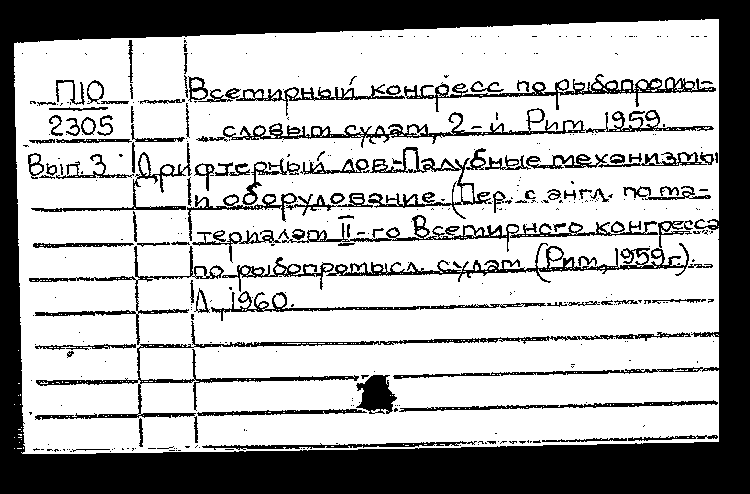 П10 Всемирный конгресс по рыбопромы-
2305 словым судам, 2-й. Рим. 1959.
Вып. 3 Дрифтерный лов.-Палубные механизмы
и оборудование. (Пер. с англ. по ма-
териалам II-го Всемирного конгресса
по рыбопромысл. судам (Рим, 1959 г.).
Л., 1960.